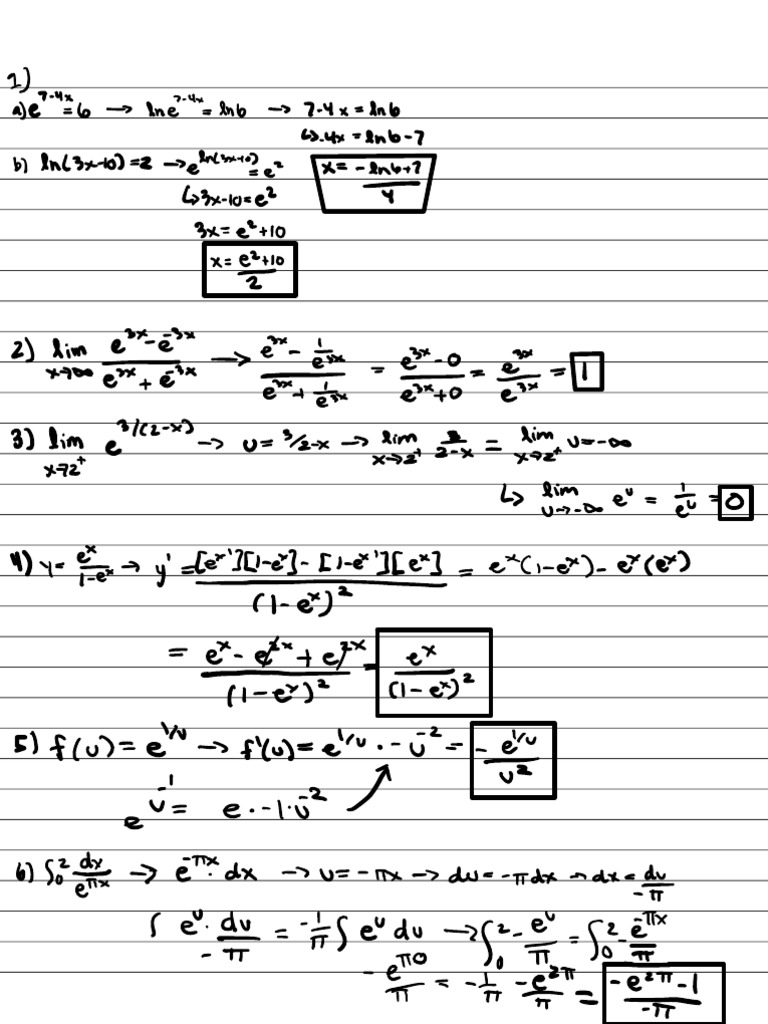 1)
a) e^{7-4x} = 6 → ln e^{7-4x} = ln 6 → 7-4x = ln 6
↳ -4x = ln 6 - 7
b) ln(3x-10) = 2 → e^{ln(3x-10)} = e^2   x = \frac{-ln 6+7}{4}
↳ 3x-10 = e^2
3x = e^2+10
x = \frac{e^2+10}{2}
2) lim_{x→∞} \frac{e^{3x} - e^{-3x}}{e^{3x} + e^{-3x}} → \frac{e^{3x} - \frac{1}{e^{3x}}}{e^{3x} + \frac{1}{e^{3x}}} = \frac{e^{3x} - 0}{e^{3x} + 0} = \frac{e^{3x}}{e^{3x}} = 1
3) lim_{x→2^+} e^{3/(2-x)} → u = 3/2-x → lim_{x→2^+} \frac{3}{2-x} = lim_{x→2^+} u = -∞
↳ lim_{u→-∞} e^u = \frac{1}{e^u} = 0
4) y = \frac{e^x}{1-e^x} → y' = \frac{[e^x '][1-e^x] - [1-e^x '][e^x]}{(1-e^x)^2} = e^x(1-e^x) - e^x(e^x)
= \frac{e^x - e^{2x} + e^{2x}}{(1-e^x)^2} = \frac{e^x}{(1-e^x)^2}
5) f(u) = e^{1/u} → f'(u) = e^{1/u} · -u^{-2} = -\frac{e^{1/u}}{u^2}
e^{u^{-1}} = e · -1 · u^{-2}
6) ∫_0^2 \frac{dx}{e^{πx}} → e^{-πx} · dx → u = -πx → du = -π dx → dx = \frac{du}{-π}
∫ e^u · \frac{du}{-π} = -\frac{1}{π} ∫ e^u du → ∫_0^2 -\frac{e^u}{π} = ∫_0^2 -\frac{e^{-πx}}{π}
-\frac{e^{π0}}{π} = -\frac{1}{π} - \frac{e^{2π}}{π} = \frac{-e^{2π} - 1}{-π}